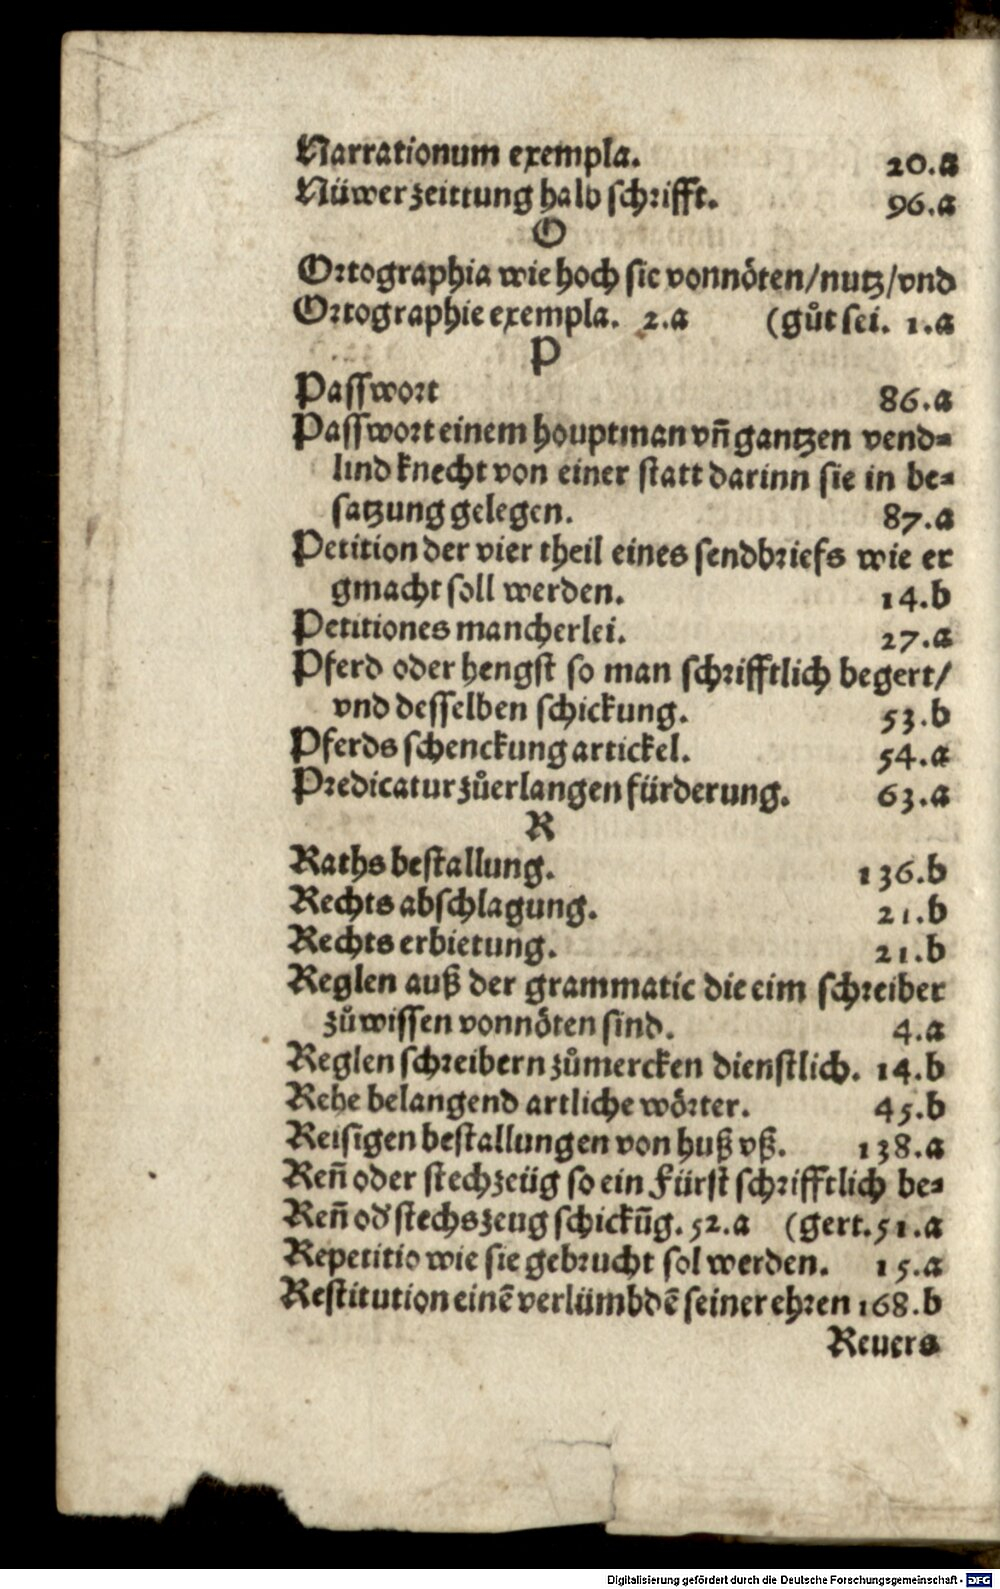 Narrationum exempla. 20.a
Nüwer zeittung halb schrifft. 96.a
O
Ortographia wie hoch sie vonnöten/nutz/vnd
Ortographie exempla. 2.a (gůt sei. 1.a
P
Passwort 86.a
Passwort einem houptman vn̄ gantzen vend⸗
lind knecht von einer statt darinn sie in be⸗
satzung gelegen. 87.a
Petition der vier theil eines sendbriefs wie er
gmacht soll werden. 14.b
Petitiones mancherlei. 27.a
Pferd oder hengst so man schrifftlich begert/
vnd desselben schickung. 53.b
Pferds schenckung artickel. 54.a
Predicatur zůerlangen fürderung. 63.a
R
Raths bestallung. 136.b
Rechts abschlagung. 21.b
Rechts erbietung. 21.b
Reglen auß der grammatic die eim schreiber
zů wissen vonnöten sind. 4.a
Reglen schreibern zůmercken dienstlich. 14.b
Rehe belangend artliche wörter. 45.b
Reisigen bestallungen von huß vß. 138.a
Ren̄ oder stechzeüg so ein Fürst schrifftlich be⸗
Ren̄ od' stechszeug schickūg. 52.a (gert. 51.a
Repetitio wie sie gebrucht sol werden. 15.a
Restitution einē verlümbdē seiner ehren 168.b
Reuers
Digitalisierung gefördert durch die Deutsche Forschungsgemeinschaft - DFG